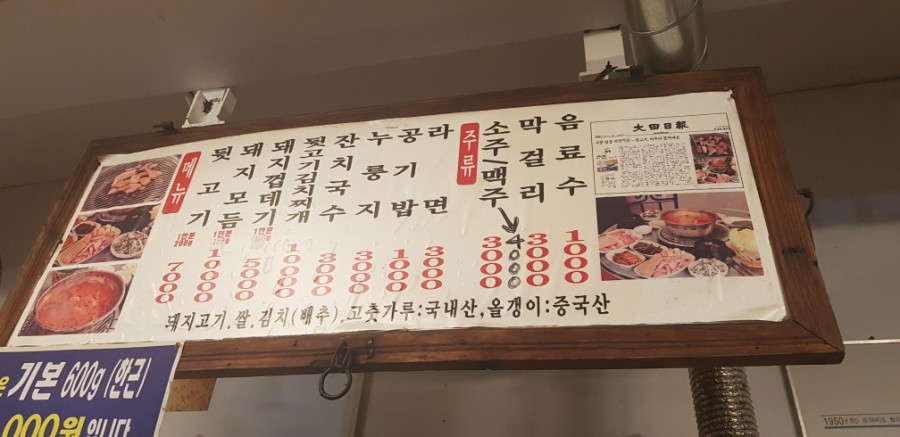 메뉴
뒷고기 1인분 200g 7000
돼지모듬 1인분 10000
돼지껍데기 1인분 5000
뒷고기김치찌개 10000
잔치국수 3000
누룽지 3000
공기밥 1000
라면 3000
주류
소주/맥주 3000 4000
막걸리 3000
음료수 1000
돼지고기,쌀,김치(배추),고춧가루:국내산,올갱이:중국산
大田日報
은 기본 600g (한근)
000원입니다
1950년